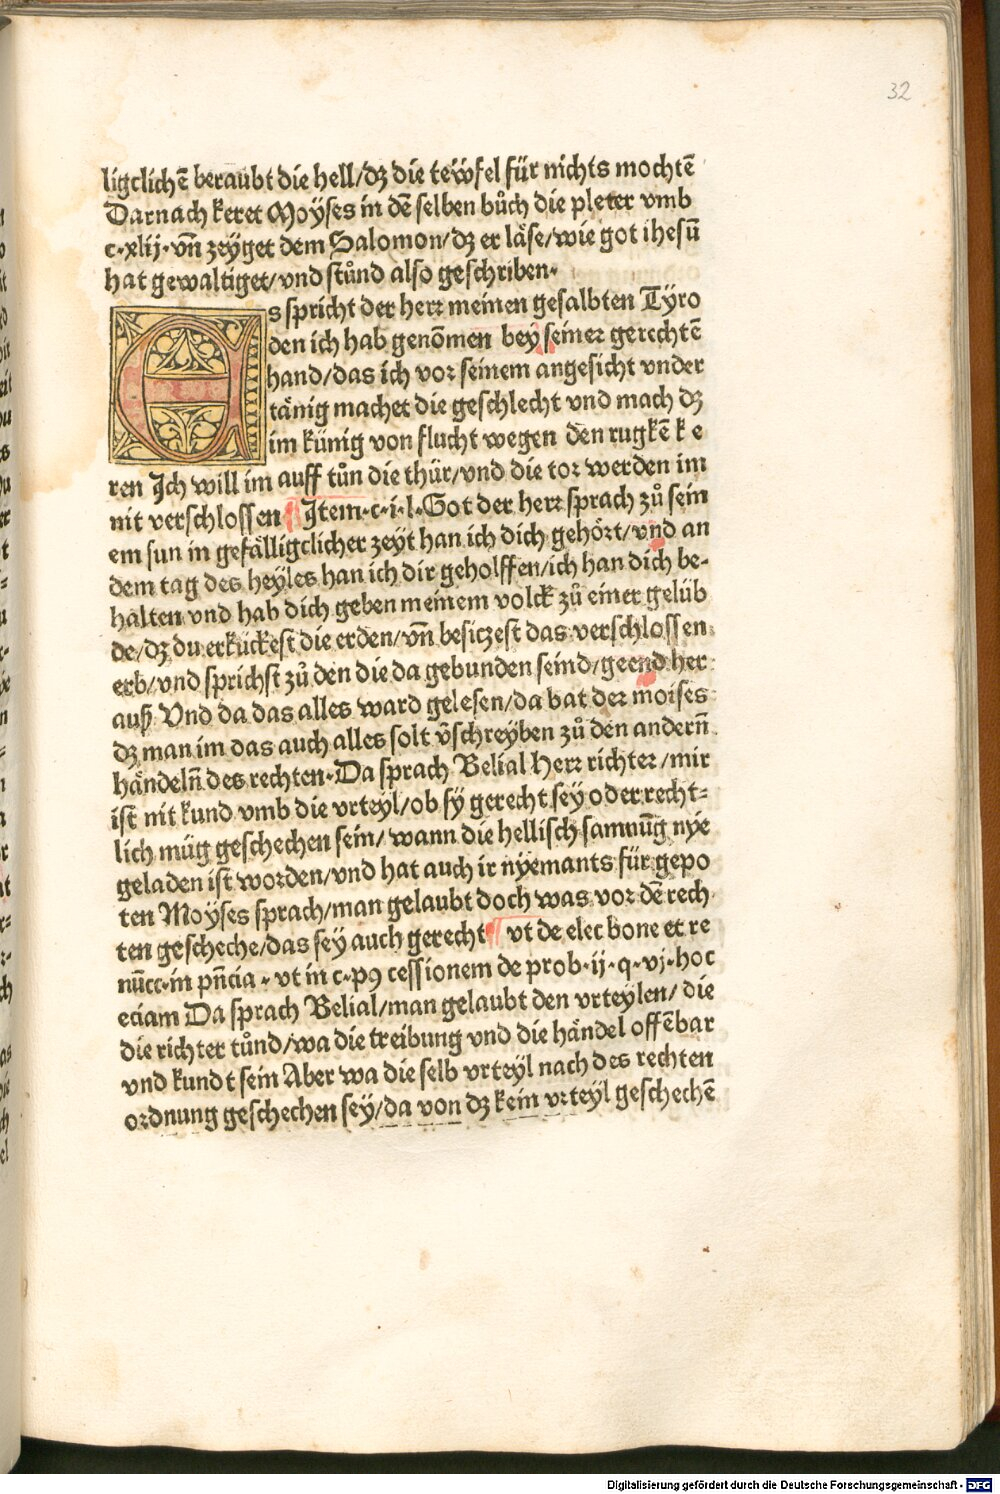 32
ligclichē beraubt die hell/dʒ die teẅfel für nichts mochtē
Darnach keret Moÿses in dē selben bůch die pleter vmb
c·xlij·vn̄ zeÿget dem Salomon/dʒ er läse/wie got ihesū
hat gewaltiget/vnd stůnd also geschriben·
Es spricht der herꝛ meinen gesalbten Tÿro
den ich hab genōmen beÿ seineꝛ gerechtē
hand/das ich voꝛ seinem angesicht vnder
tänig machet die geschlecht vnd mach dʒ
im künig von flucht wegen den rugkē ke
ren Ich will im auff tůn die thür/vnd die toꝛ werden im
nit verschlossen ¶ Item·c·i·l·Got der herꝛ sprach zů sein
em sun in gefälligclicher zeÿt han ich dich gehöꝛt/vnd an
dem tag des heÿles han ich dir geholffen/ich han dich be-
halten vnd hab dich geben meinem volck zů einer gelüb
de/dʒ du erkückest die erden/vn̄ besiczest das verschlossen
erb/vnd sprichst zů den die da gebunden seind/geend her
auß Vnd da das alles ward gelesen/da bat deꝛ moises
dʒ man im das auch alles solt v̄schreÿben zů den andern̄
händeln̄ des rechten·Da sprach Belial Herꝛ richteꝛ/mir
ist nit kund vmb die vrteÿl/ob sÿ gerecht seÿ oder recht=
lich müg geschechen sein/wann die hellisch samnūg nÿe
geladen ist woꝛden/vnd hat auch ir nÿemants für gepo
ten Moÿses sprach/man gelaubt doch was voꝛ dē rech
ten gescheche/das seÿ auch gerecht ¶ vt de elec bone et re
nūcc·in pn̄cia·vt in c·pꝯ cessionem de prob·ij·q·vj·hoc
eciam Da sprach Belial/man gelaubt den vrteÿlen/die
die richter tůnd/wa die treibung vnd die händel offēbar
vnd kundt sein Aber wa die selb vrteÿl nach des rechten
oꝛdnung geschechen seÿ/da von dʒ kein vꝛteÿl geschechē
Digitalisierung gefördert durch die Deutsche Forschungsgemeinschaft - DFG